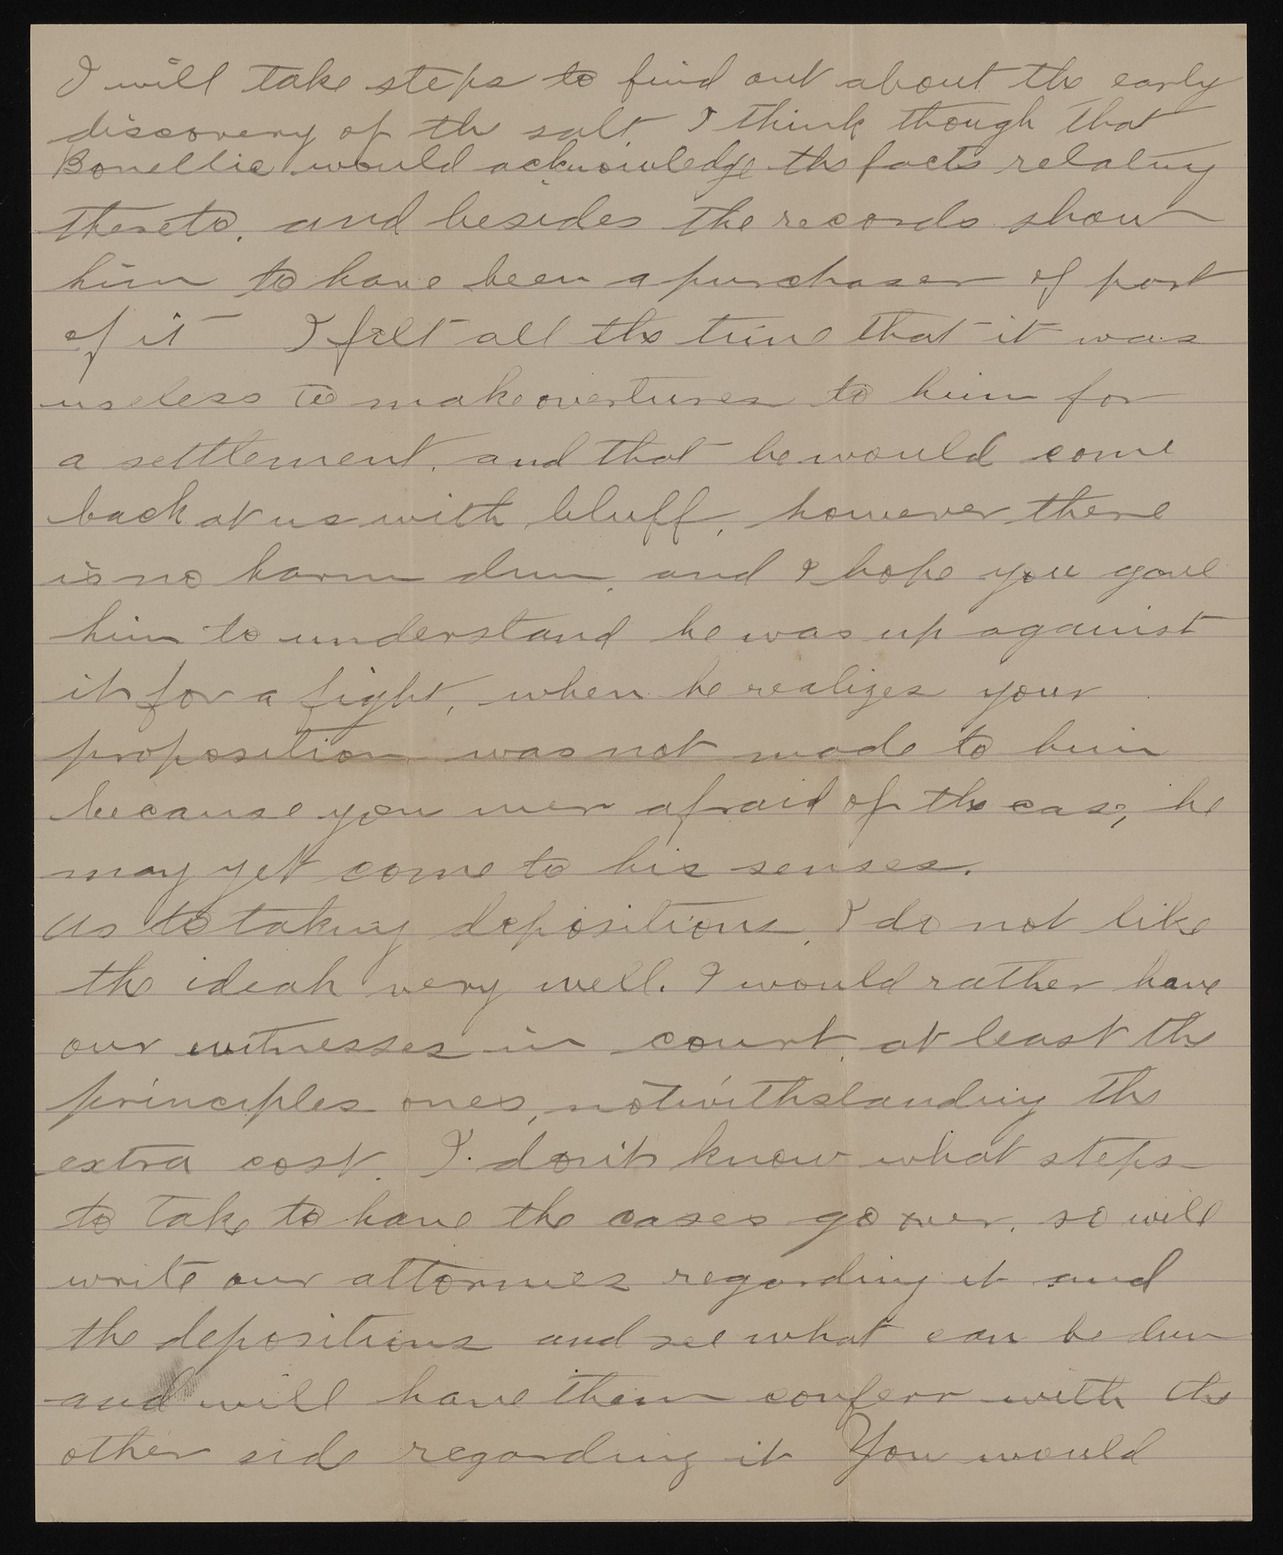 I will take steps to find out about the early
discovery of the salt I think though that
Bonellie would acknowledge the facts relating
thereto. and besides the records show
him to have been a purchaser of part
of it I felt all the time that it was
useless to make overtures to him for
a settlement, and that he would come
back at us with bluff, however there
is no harm dun, and I hope you gave
him to understand he was up against
it for a fight, when he realizes your
proposition was not made to him
because you wer afraid of the case, he
may yet come to his senses.
As to taking depositions, I do not like
the ideah very well. I would rather have
our witnesses in court, at least the
principles ones, notwithstanding the
extra cost. I don't know what steps
to take to have the cases go over, so will
write our attornies regarding it and
the depositions and see what can be dun
and will have them conferr with the
other side regarding it You would